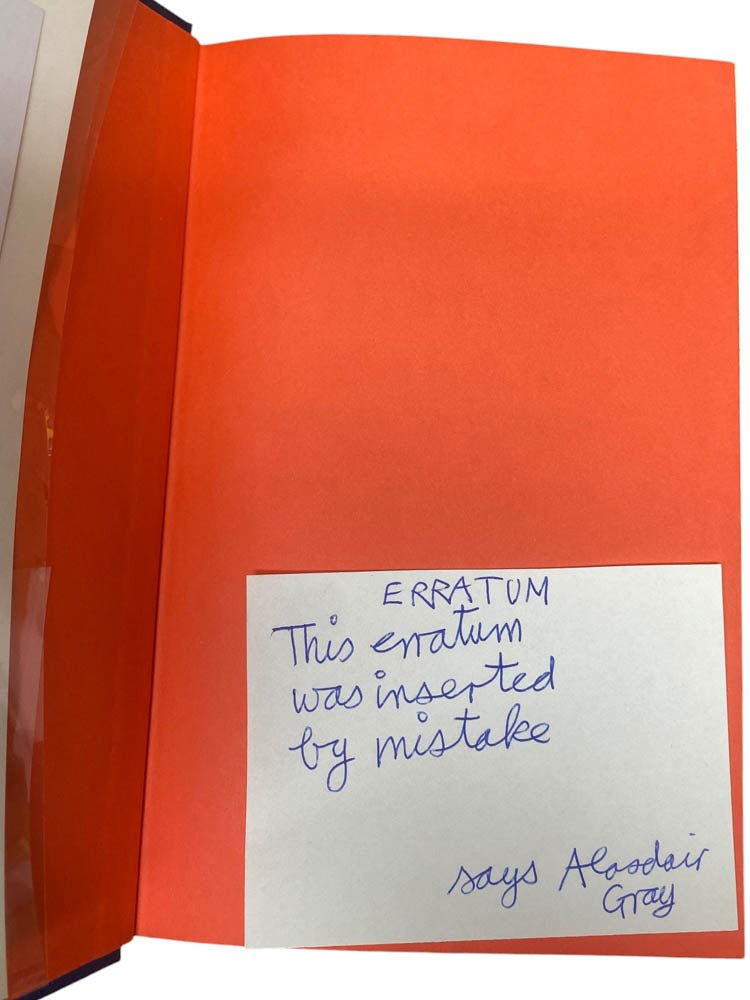 ERRATUM
This erratum
was inserted
by mistake
says Alasdair
Gray